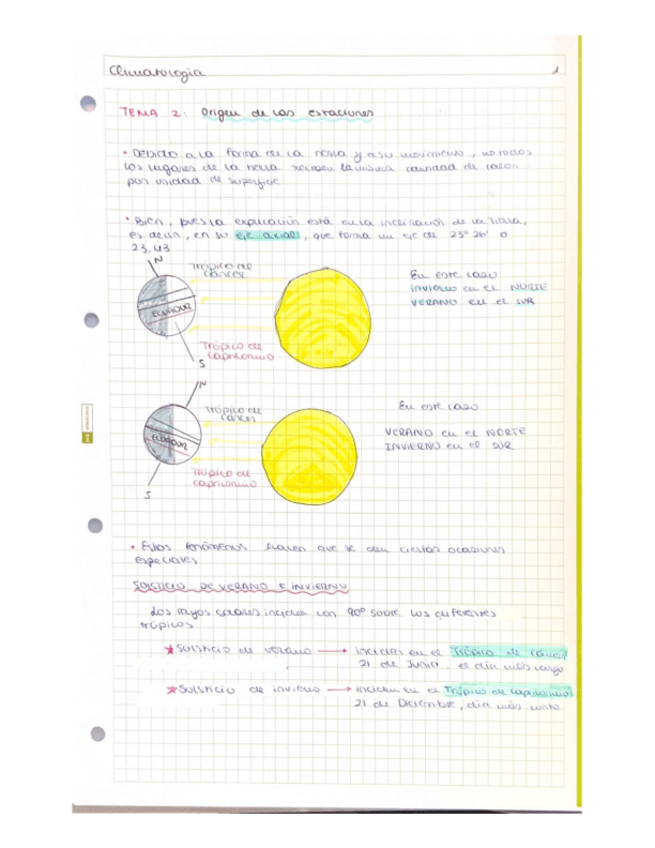 Climatología 1
TEMA 2: Origen de las estaciones
• Debido a la forma de la Tierra y a su movimiento, no todos
los lugares de la Tierra reciben la misma cantidad de calor
por unidad de superficie
• Bien, pues la explicación está en la inclinación de la Tierra,
es decir, en su eje axial, que forma un eje de 23º 26' o
23,43
N
Trópico de
cáncer
ECUADOR
Trópico de
capricornio
S
En este caso
invierno en el NORTE
VERANO en el SUR
N
Trópico de
cancer
ECUADOR
Trópico de
capricornio
S
En este caso
VERANO en el NORTE
INVIERNO en el SUR
• Estos fenómenos hacen que se den ciertas ocasiones
especiales
SOLSTICIO DE VERANO E INVIERNO
Los rayos solares inciden con 90º sobre los diferentes
trópicos
★ Solsticio de verano → inciden en el Trópico de cáncer
21 de Junio el día más largo
★ Solsticio de invierno → inciden en el Trópico de capricornio
21 de Diciembre, día más corto